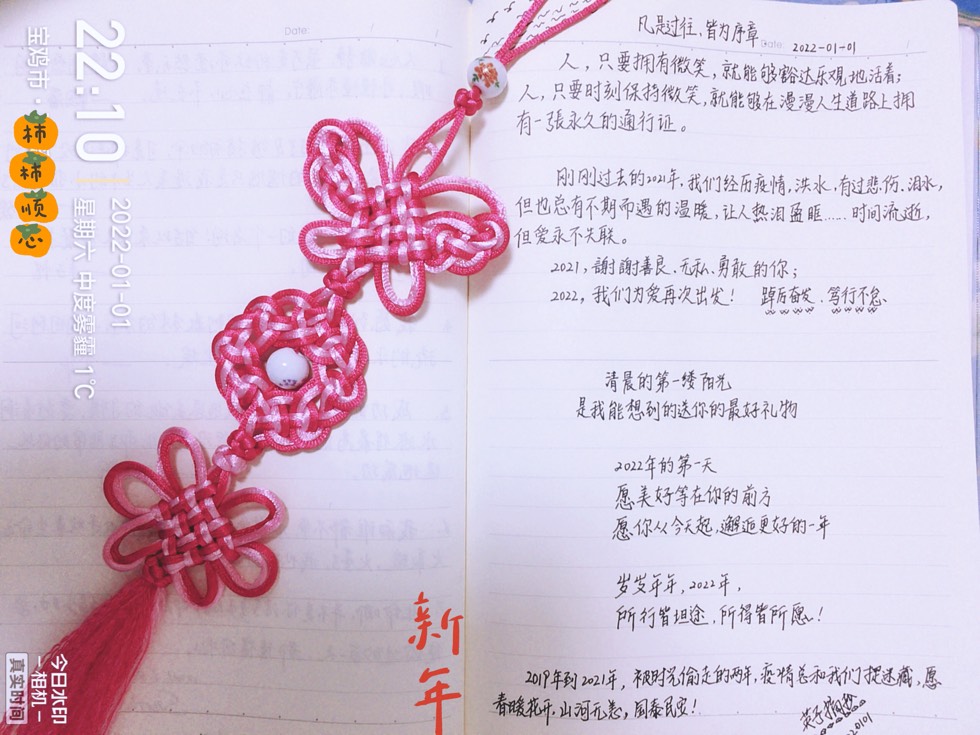 22:10
2022-01-01
星期六 中度雾霾 1℃
宝鸡市·
柿柿顺心
今日水印
-相机-
真实时间
新年
Date:
凡是过往,皆为序章
Date:
2022-01-01
人,只要拥有微笑,就能够豁达乐观地活着;
人,只要时刻保持微笑,就能够在漫漫人生道路上拥
有一張永久的通行证。
刚刚过去的2021年,我们经历疫情,洪水,有过悲伤、泪水,
但也总有不期而遇的温暖,让人热泪盈眶……时间流逝,
但爱永不失联。
2021,謝謝善良、无私、勇敢的你;
2022,我们为爱再次出发! 踔厉奋发、笃行不怠
清晨的第一缕阳光
是我能想到的送你的最好礼物
2022年的第一天
愿美好等在你的前方
愿你从今天起,邂逅更好的一年
岁岁年年,2022年,
所行皆坦途,所得皆所愿!
2019年到2021年,被时光偷走的两年,疫情总和我们捉迷藏,愿
春暖花开,山河无恙,国泰民安!